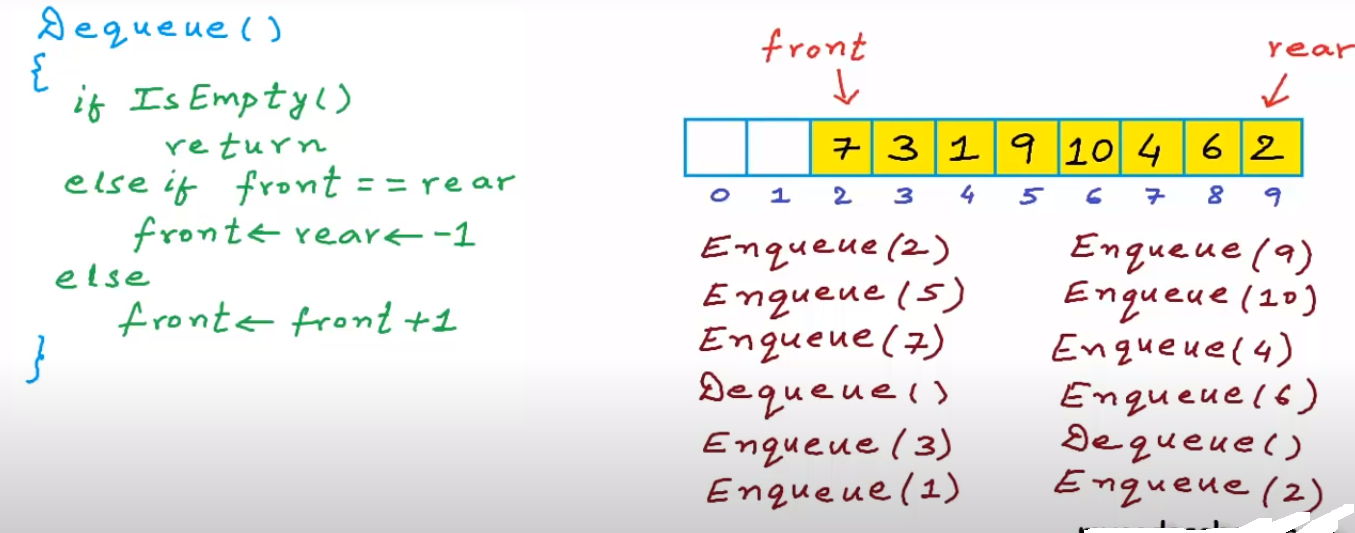 Dequeue()
{
if IsEmpty()
return
else if front == rear
front ← rear ← -1
else
front ← front +1
}
front
rear
7 3 1 9 10 4 6 2
0 1 2 3 4 5 6 7 8 9
Enqueue(2)
Enqueue(5)
Enqueue(7)
Dequeue()
Enqueue(3)
Enqueue(1)
Enqueue(9)
Enqueue(10)
Enqueue(4)
Enqueue(6)
Dequeue()
Enqueue(2)